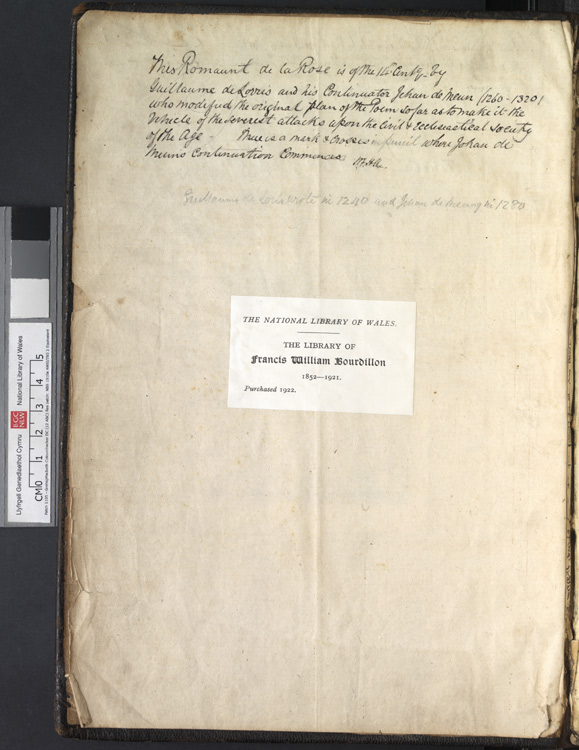 This Romaunt de la Rose is of the 14 Centy. by
Guillaume de Lorris and his Continuator Jehan de Meun (1260-1320)
who modified the original plan of the Poem so far as to make it the
Vehicle of the severest attacks upon the Civil & Ecclesiastical Society
of the Age - There is a mark & Crosses in pencil where Johan de
Meuns Continuation Commences
Guillaume de Loris wrote in 1240 and Jehan de Meung in 1280
THE NATIONAL LIBRARY OF WALES.
THE LIBRARY OF
Francis William Bourdillon
1852—1921.
Purchased 1922.
Llyfrgell Genedlaethol Cymru
National Library of Wales
CM 0 1 2 3 4 5